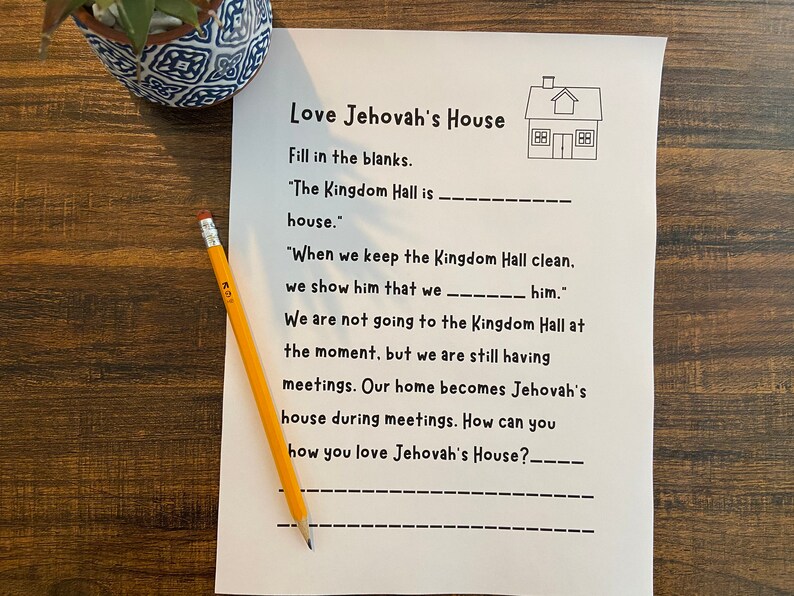 Love Jehovah's House
Fill in the blanks.
"The Kingdom Hall is ___________
house."
"When we keep the Kingdom Hall clean,
we show him that we _______ him."
We are not going to the Kingdom Hall at
the moment, but we are still having
meetings. Our home becomes Jehovah's
house during meetings. How can you
how you love Jehovah's House?____